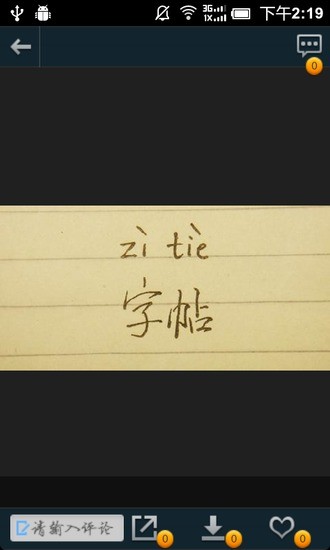 3G 1X 下午2:19
0
zì tiè
字帖
请输入评论 0 0 0